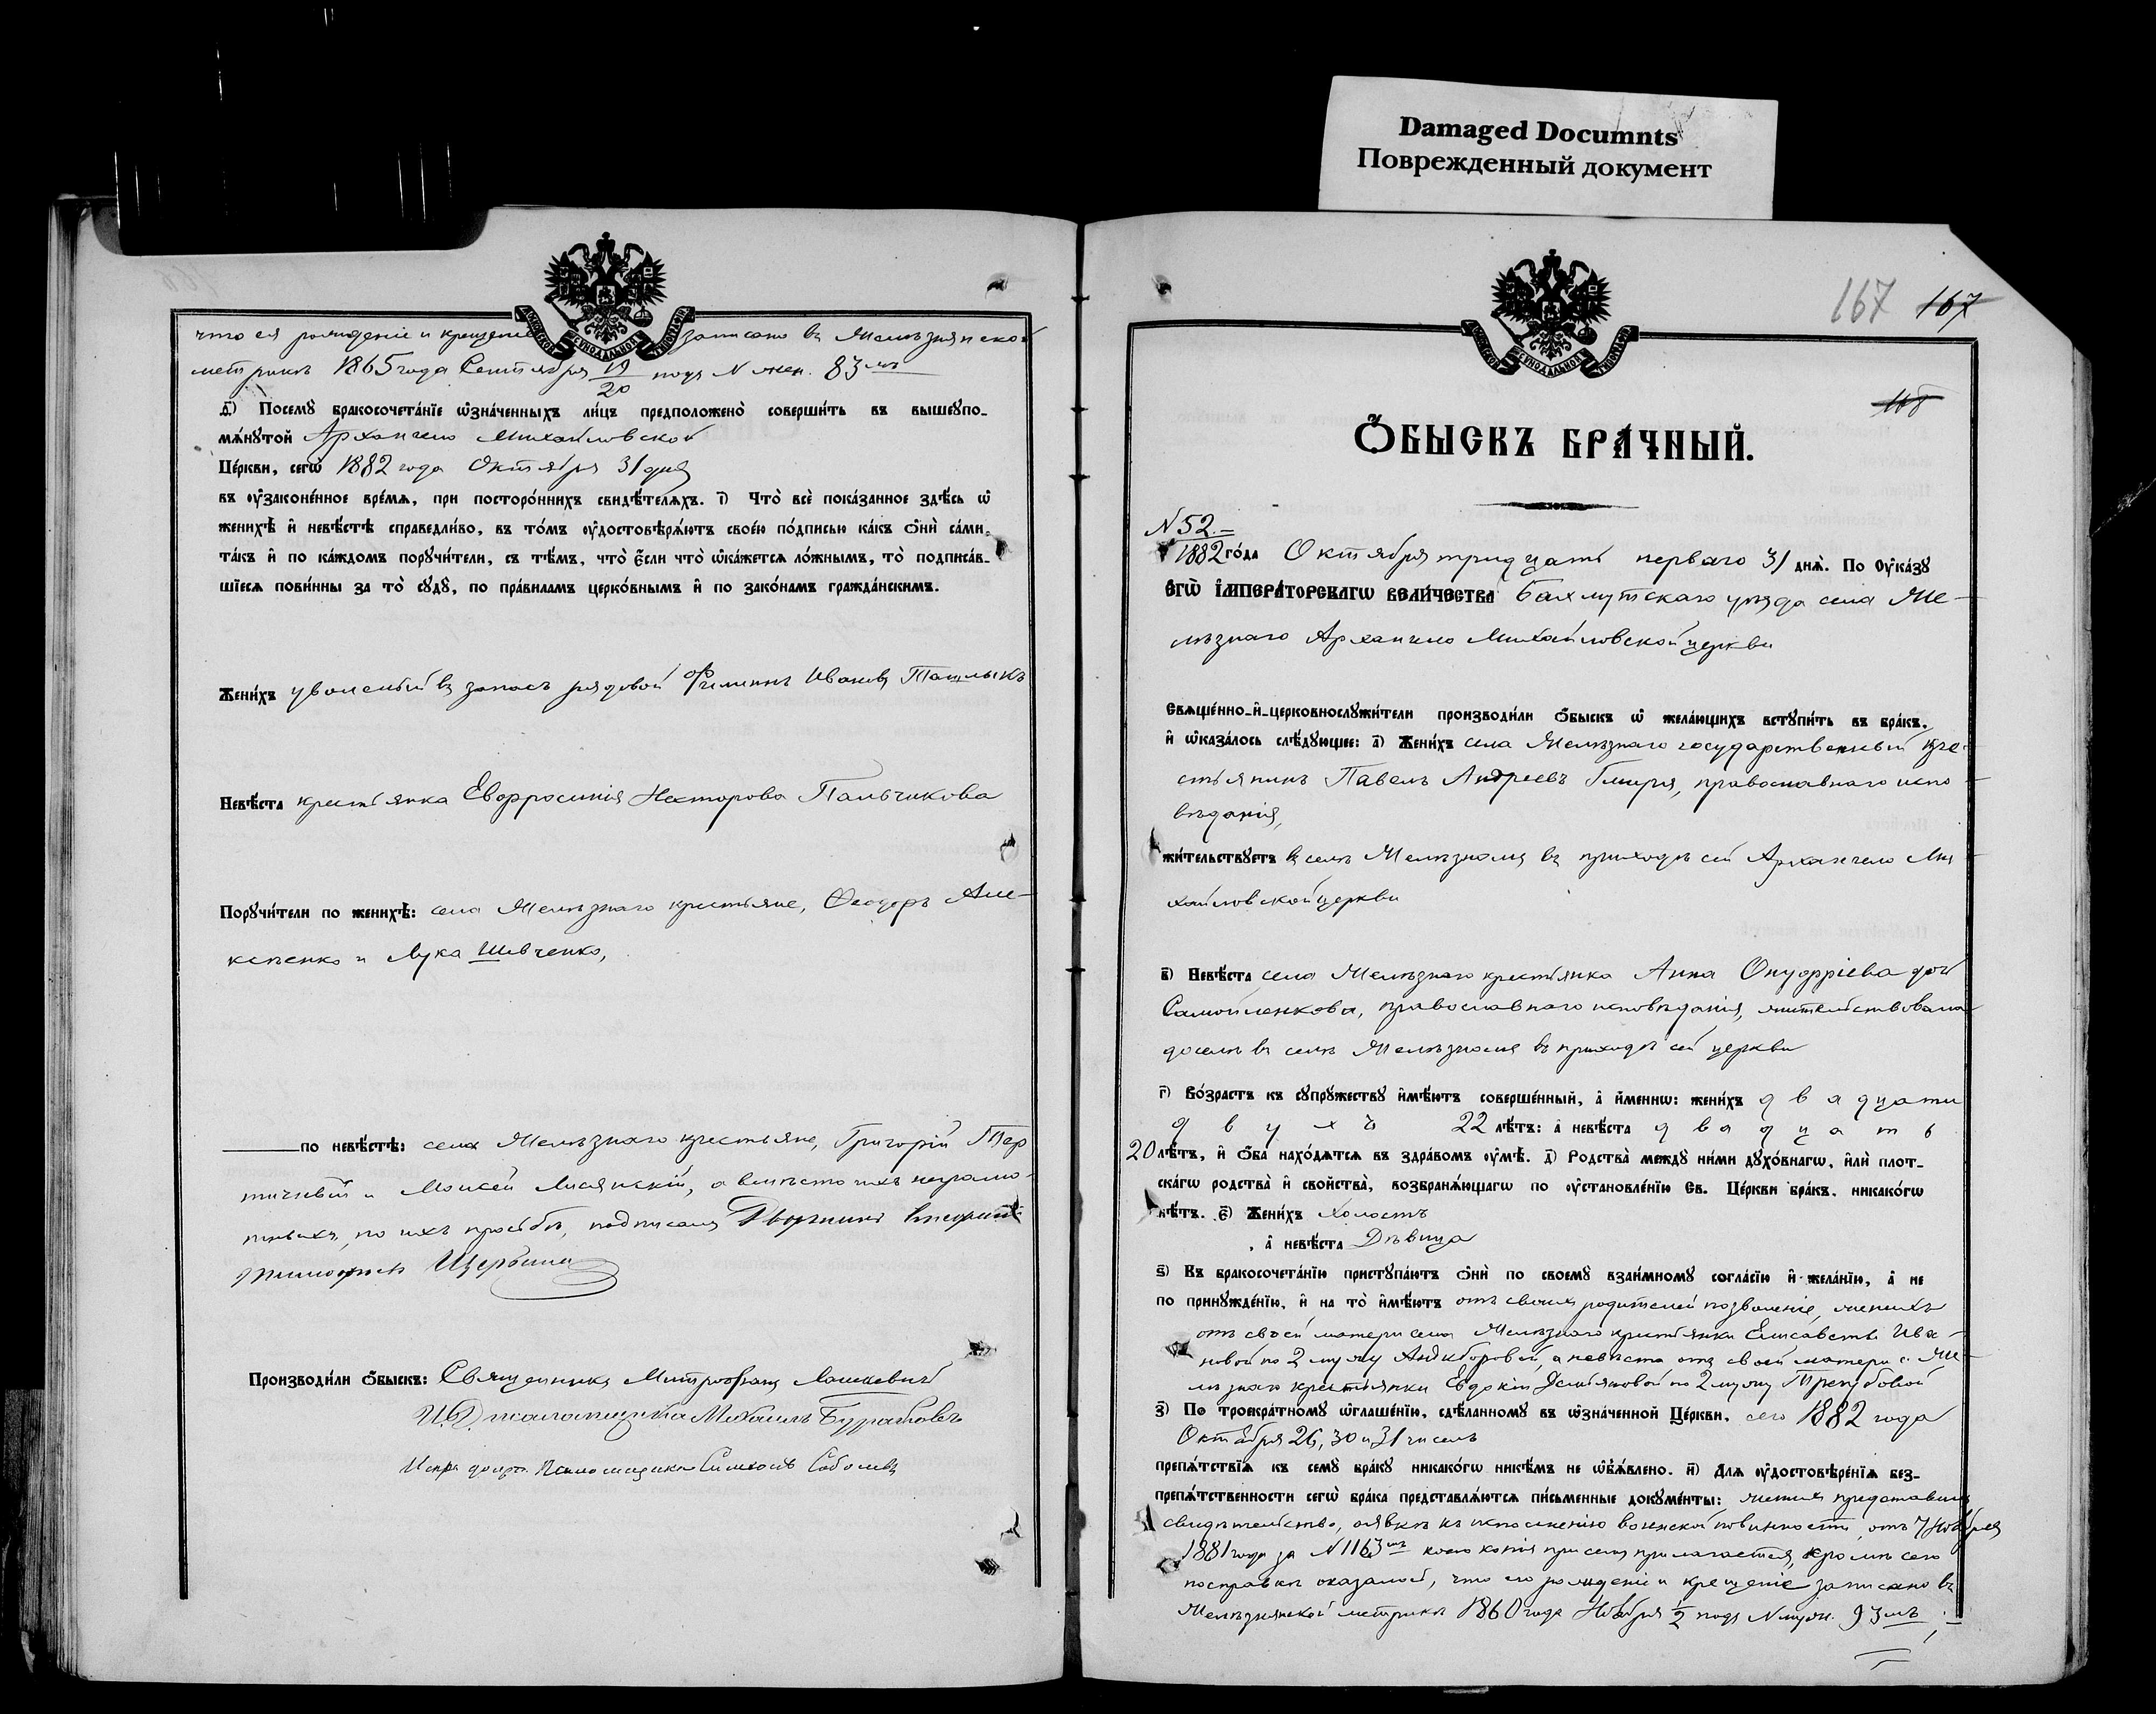 Damaged Documnts
Поврежденный документ
что ея рожденіе и крещеніе записано въ Желѣзнянской
МОСКОВСКОЙ СѴНОДАЛЬНОЙ ТИПОГРАФІИ
метрикѣ 1865 года Сентября 19/20 подъ N жен. 83мъ
д҃) Посемꙋ̀ бракосочета́нїе ѡ҆зна́ченныхъ ли́цъ предположено̀ соверши́ть въ вышеꙋпо-
мѧ́нꙋтой Архангело Михайловской
Це́ркви, сегѡ̀ 1882 года Октября 31 дня
въ ᲂу҆законе́нное вре́мѧ, при посторо́ннихъ свидѣ́телѧхъ. і҃) Что̀ всѐ пока́занное здѣ́сь ѡ҆
женихѣ̀ и҆ невѣ́стѣ справедли́во, въ то́мъ ᲂу҆достовѣрѧ́ютъ свое́ю по́дписью ка́къ ѻ҆нѝ са́ми,
та́къ и҆ по ка́ждомъ порꙋчи́тели, съ тѣ́мъ, что̀ є҆́сли что̀ ѡ҆ка́жется ло́жнымъ, то̀ подписа́в-
шїеся пови́нны за то̀ сꙋдꙋ̀, по пра́виламъ церко́внымъ и҆ по зако́намъ гражда́нскимъ.
Жени́хъ уволеный въ запасъ рядовой Филиппъ Ивановъ Ташлыкъ
Невѣ́ста крестьянка Евфросинія Несторова Пальчикова
Порꙋчи́тели по женихѣ̀: села Желѣзнаго крестьяне, Феодоръ Але-
ксеенко и Лука Шевченко,
по невѣ́стѣ: села Желѣзнаго крестьяне, Григорій Тер
тичный и Моисей Лисянскій, а вмѣсто ихъ неграмо-
тныхъ, по ихъ просьбѣ, подписалъ
Щербина
Производи́ли ѻ҆́быскъ: Священникъ Митрофанъ Лашкевичъ
И. Д. псаломщика Михаилъ Бураковъ
Испр. должн. Псаломщика Симеонъ Соболевъ
167 167
118
Ѻ҆́БЫСКЪ БРА́ЧНЫЙ.
N 52.
1882 го́да Октября тридцать перваго 31 днѧ̀. По Оу҆ка́зꙋ
ЕГѠ̀ І҆МПЕРА́ТОРСКАГѠ ВЕЛИ́ЧЕСТВА Бахмутскаго уѣзда села Же-
лѣзнаго Архангело Михайловской церкви
Свѧще́нно-и҆-церковнослꙋжи́тели производи́ли ѻ҆́быскъ ѡ҆ жела́ющихъ встꙋпи́ть въ бра́къ,
и҆ ѡ҆каза́лось слѣ́дꙋющее: а҃) Жени́хъ села Желѣзнаго государственный кре-
стьянинъ Павелъ Андреевъ Гмиря, православнаго испо-
вѣданія,
жи́тельствꙋетъ въ селѣ Желѣзномъ въ приходѣ сей Архангело Ми-
хайловской церкви
в҃) Невѣ́ста села Желѣзнаго крестьянка Анна Онуфріева дочь
Самойленкова, православнаго исповѣданія, жительствовала
доселѣ въ селѣ Желѣзномъ въ приходѣ сей церкви
г҃) Во́зрастъ къ сꙋпрꙋ́жествꙋ и҆мѣ́ютъ соверше́нный, а҆ и҆́менно: жени́хъ двадцати
двухъ 22 лѣ́тъ: а҆ невѣ́ста двадцать
20 лѣ́тъ, и҆ ѻ҆́ба нахо́дѧтся въ здра́вомъ ᲂу҆мѣ̀. д҃) Родства̀ междꙋ̀ ни́ми дꙋхо́внагѡ, и҆лѝ плот-
ска́гѡ родства̀ и҆ сво́йства̀, возбранѧ́ющагѡ по ᲂу҆становле́нїю Св. Це́ркви бра́къ, никако́гѡ
нѣ́тъ. є҃) Жени́хъ холостъ
, а҆ невѣ́ста Дѣвица
ѕ҃) Къ бракосочета́нїю пристꙋпа́ютъ ѻ҆нѝ по своемꙋ̀ взаи́мномꙋ согла́сїю и҆ жела́нїю, а҆ не
по принꙋжде́нїю, и҆ на то̀ и҆мѣ́ютъ отъ своихъ родителей позволеніе, женихъ
отъ своей матери села Желѣзнаго крестьянки Елисаветы Ива-
новой по 2 мужу Андиборовой, а невѣста отъ своей матери с. Же-
лѣзнаго крестьянки Евдокіи Демьяновой по 2 мужу
з҃) По троекра́тномꙋ ѡ҆глаше́нїю, сдѣ́ланномꙋ въ ѡ҆зна́ченной Це́ркви, сего 1882 года
Октября 26, 30 и 31 числъ
препѧ́тствїѧ къ семꙋ̀ бра́кꙋ никако́гѡ никѣ́мъ не ѡ҆б̾ѧ́влено. и҃) Длѧ ᲂу҆достовѣре́нїѧ без-
препѧ́тственности сегѡ̀ бра́ка представлѧ́ются пи́сьменные докꙋме́нты: женихъ представилъ
свидѣтельство, о явкѣ къ исполненію воинской повинности, отъ 7 Ноября
1881 года за N 1163мъ коего копія при семъ прилагается, кромѣ сего
по справкѣ оказалось, что его рожденіе и крещеніе записано въ
Желѣзнянской метрикѣ 1860 года Ноября 1/2 подъ N муж. 93мъ;